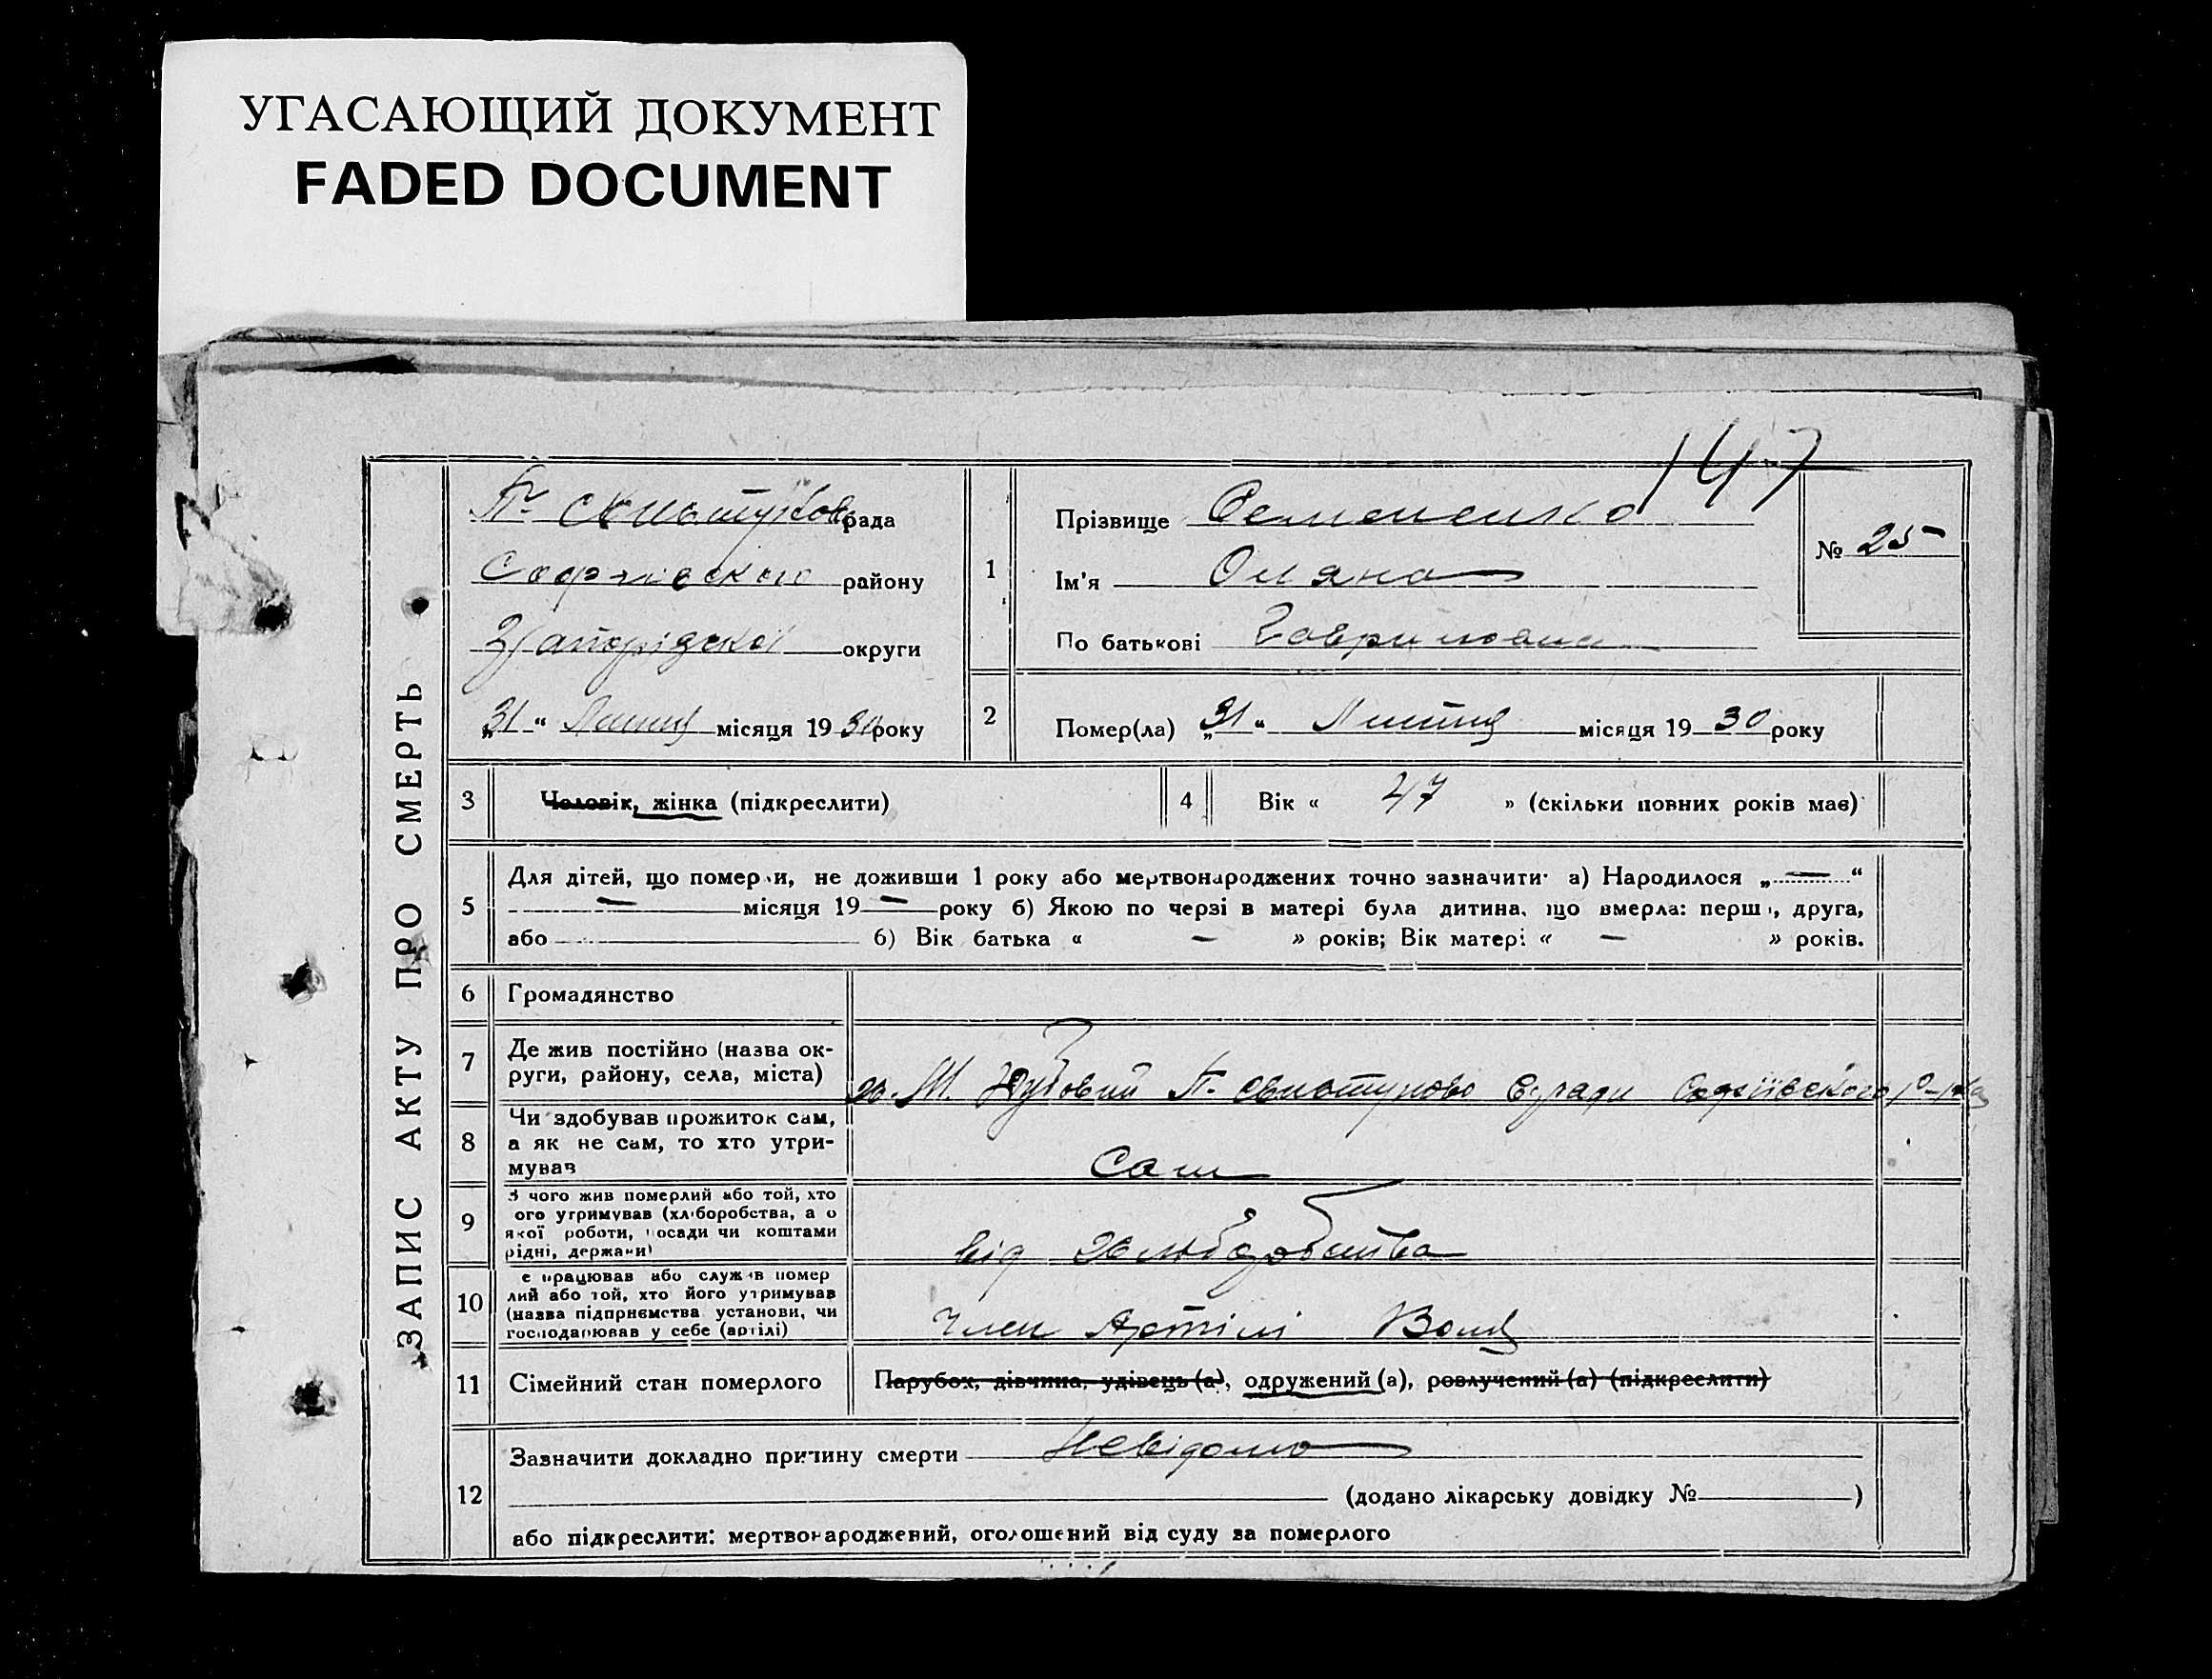 УГАСАЮЩИЙ ДОКУМЕНТ
FADED DOCUMENT
147
ЗАПИС АКТУ ПРО СМЕРТЬ
рада
Софіївського району
Запорізської округи
„31“ Липня місяця 1930 року
1
Прізвище Семененко
Ім'я Оляна
По батькові Гаврилована
№ 25
2
Помер(ла) „31“ Липня місяця 1930 року
3
Чоловік, жінка (підкреслити)
4
Вік « 47 » (скільки повних років має)
5
Для дітей, що померли, не доживши 1 року або мертвонароджених точно зазначити: а) Народилося „—“
— місяця 19 — року б) Якою по черзі в матері була дитина, що вмерла: перша, друга,
або 6) Вік батька « — » років; Вік матері « — » років.
6
Громадянство
7
Де жив постійно (назва ок-
руги, району, села, міста)
х. М. Дубовий П. Свистуново С/ради Софіївського р-на
8
Чи здобував прожиток сам,
а як не сам, то хто утри-
мував
Сам
9
З чого жив померлий або той, хто
ого утримував (хліборобства, а о
якої роботи, посади чи коштами
рідні, держави)
від хліборобства
10
е працював або служив помер
лий або той, хто його утримував
(назва підприємства установи, чи
господарював у себе (артілі)
Член Артілі
11
Сімейний стан померлого
Парубок, дівчина, удівець (а), одружений (а), розлучений (а) (підкреслити)
12
Зазначити докладно причину смерти Невідомо
(додано лікарську довідку № )
або підкреслити: мертвонароджений, оголошений від суду за померлого